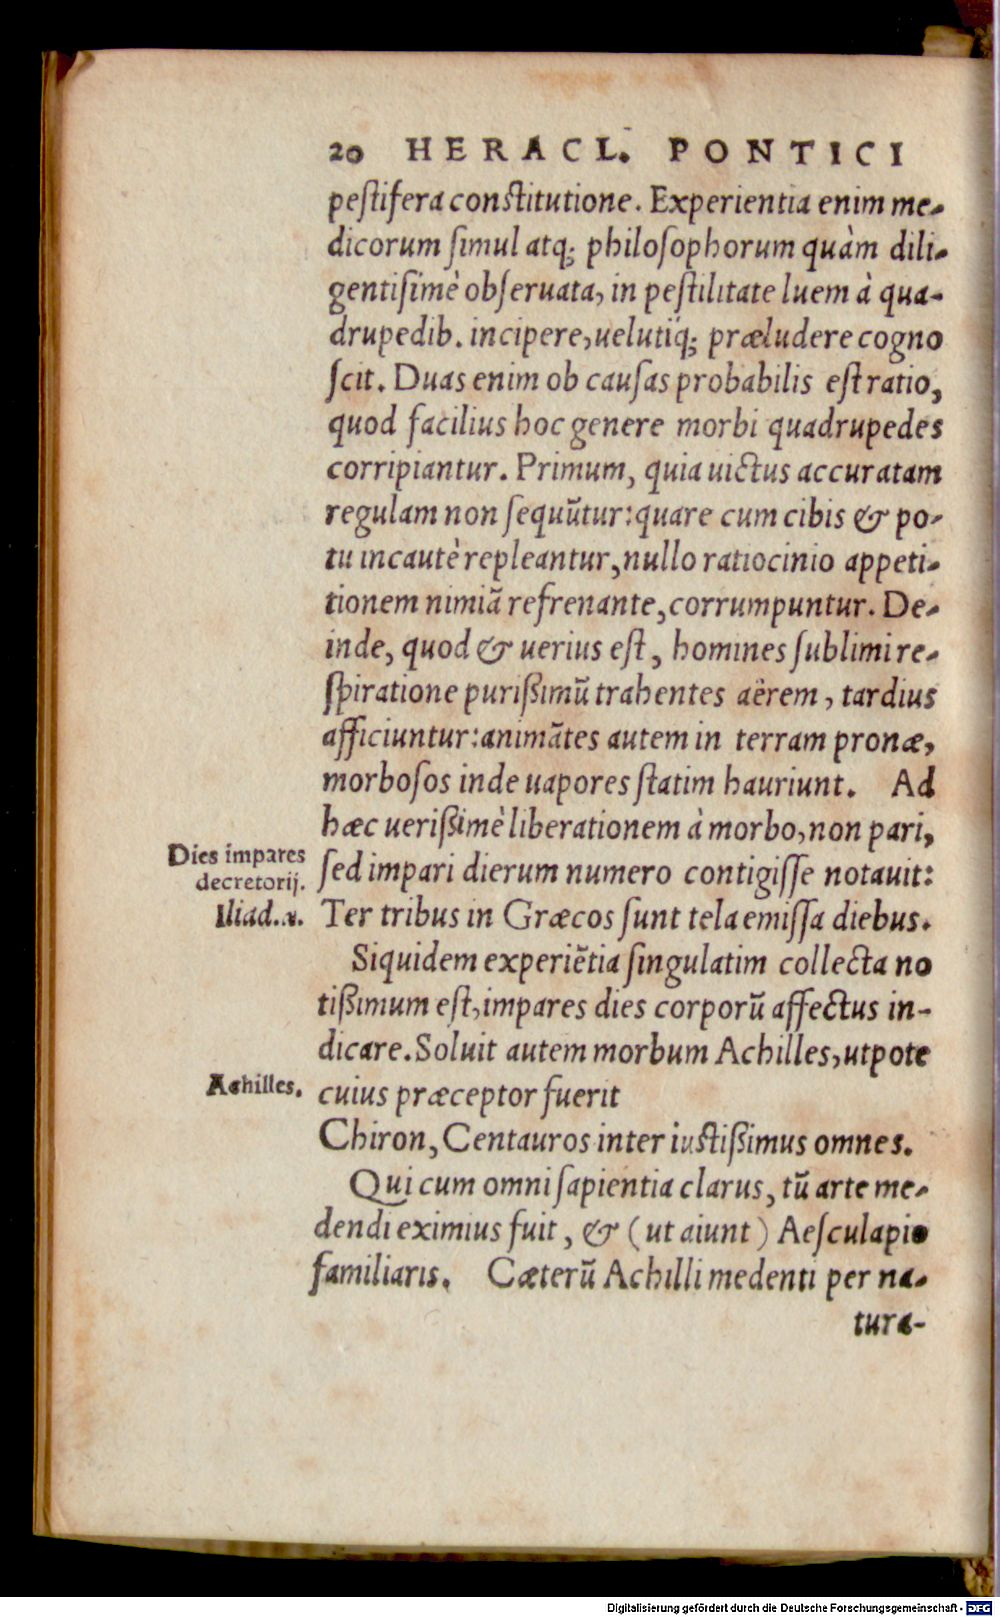 20 HERACL. PONTICI
peſtifera conſtitutione. Experientia enim me-
dicorum ſimul atq; philoſophorum quàm dili-
gentiſimè obſeruata, in peſtilitate luem à qua-
drupedib. incipere, uelutiq́; præludere cogno
ſcit. Duas enim ob cauſas probabilis eſt ratio,
quod facilius hoc genere morbi quadrupedes
corripiantur. Primum, quia uictus accuratam
regulam non ſequūtur: quare cum cibis & po-
tu incautè repleantur, nullo ratiocinio appeti-
tionem nimiā refrenante, corrumpuntur. De-
inde, quod & uerius eſt, homines ſublimi re-
ſpiratione purißimū trahentes aêrem, tardius
afficiuntur: animātes autem in terram pronæ,
morboſos inde uapores ſtatim hauriunt. Ad
hæc uerißimè liberationem à morbo, non pari,
Dies impares
decretorij.
ſed impari dierum numero contigiſſe notauit:
Iliad. α.
Ter tribus in Græcos ſunt tela emiſſa diebus.
Siquidem experiētia ſingulatim collecta no
tißimum eſt, impares dies corporū affectus in-
dicare. Soluit autem morbum Achilles, utpote
Achilles.
cuius præceptor fuerit
Chiron, Centauros inter iuſtißimus omnes.
Qui cum omni ſapientia clarus, tū arte me-
dendi eximius fuit, & (ut aiunt) Aeſculapio
familiaris. Cæterū Achilli medenti per na-
tura-
Digitalisierung gefördert durch die Deutsche Forschungsgemeinschaft - DFG